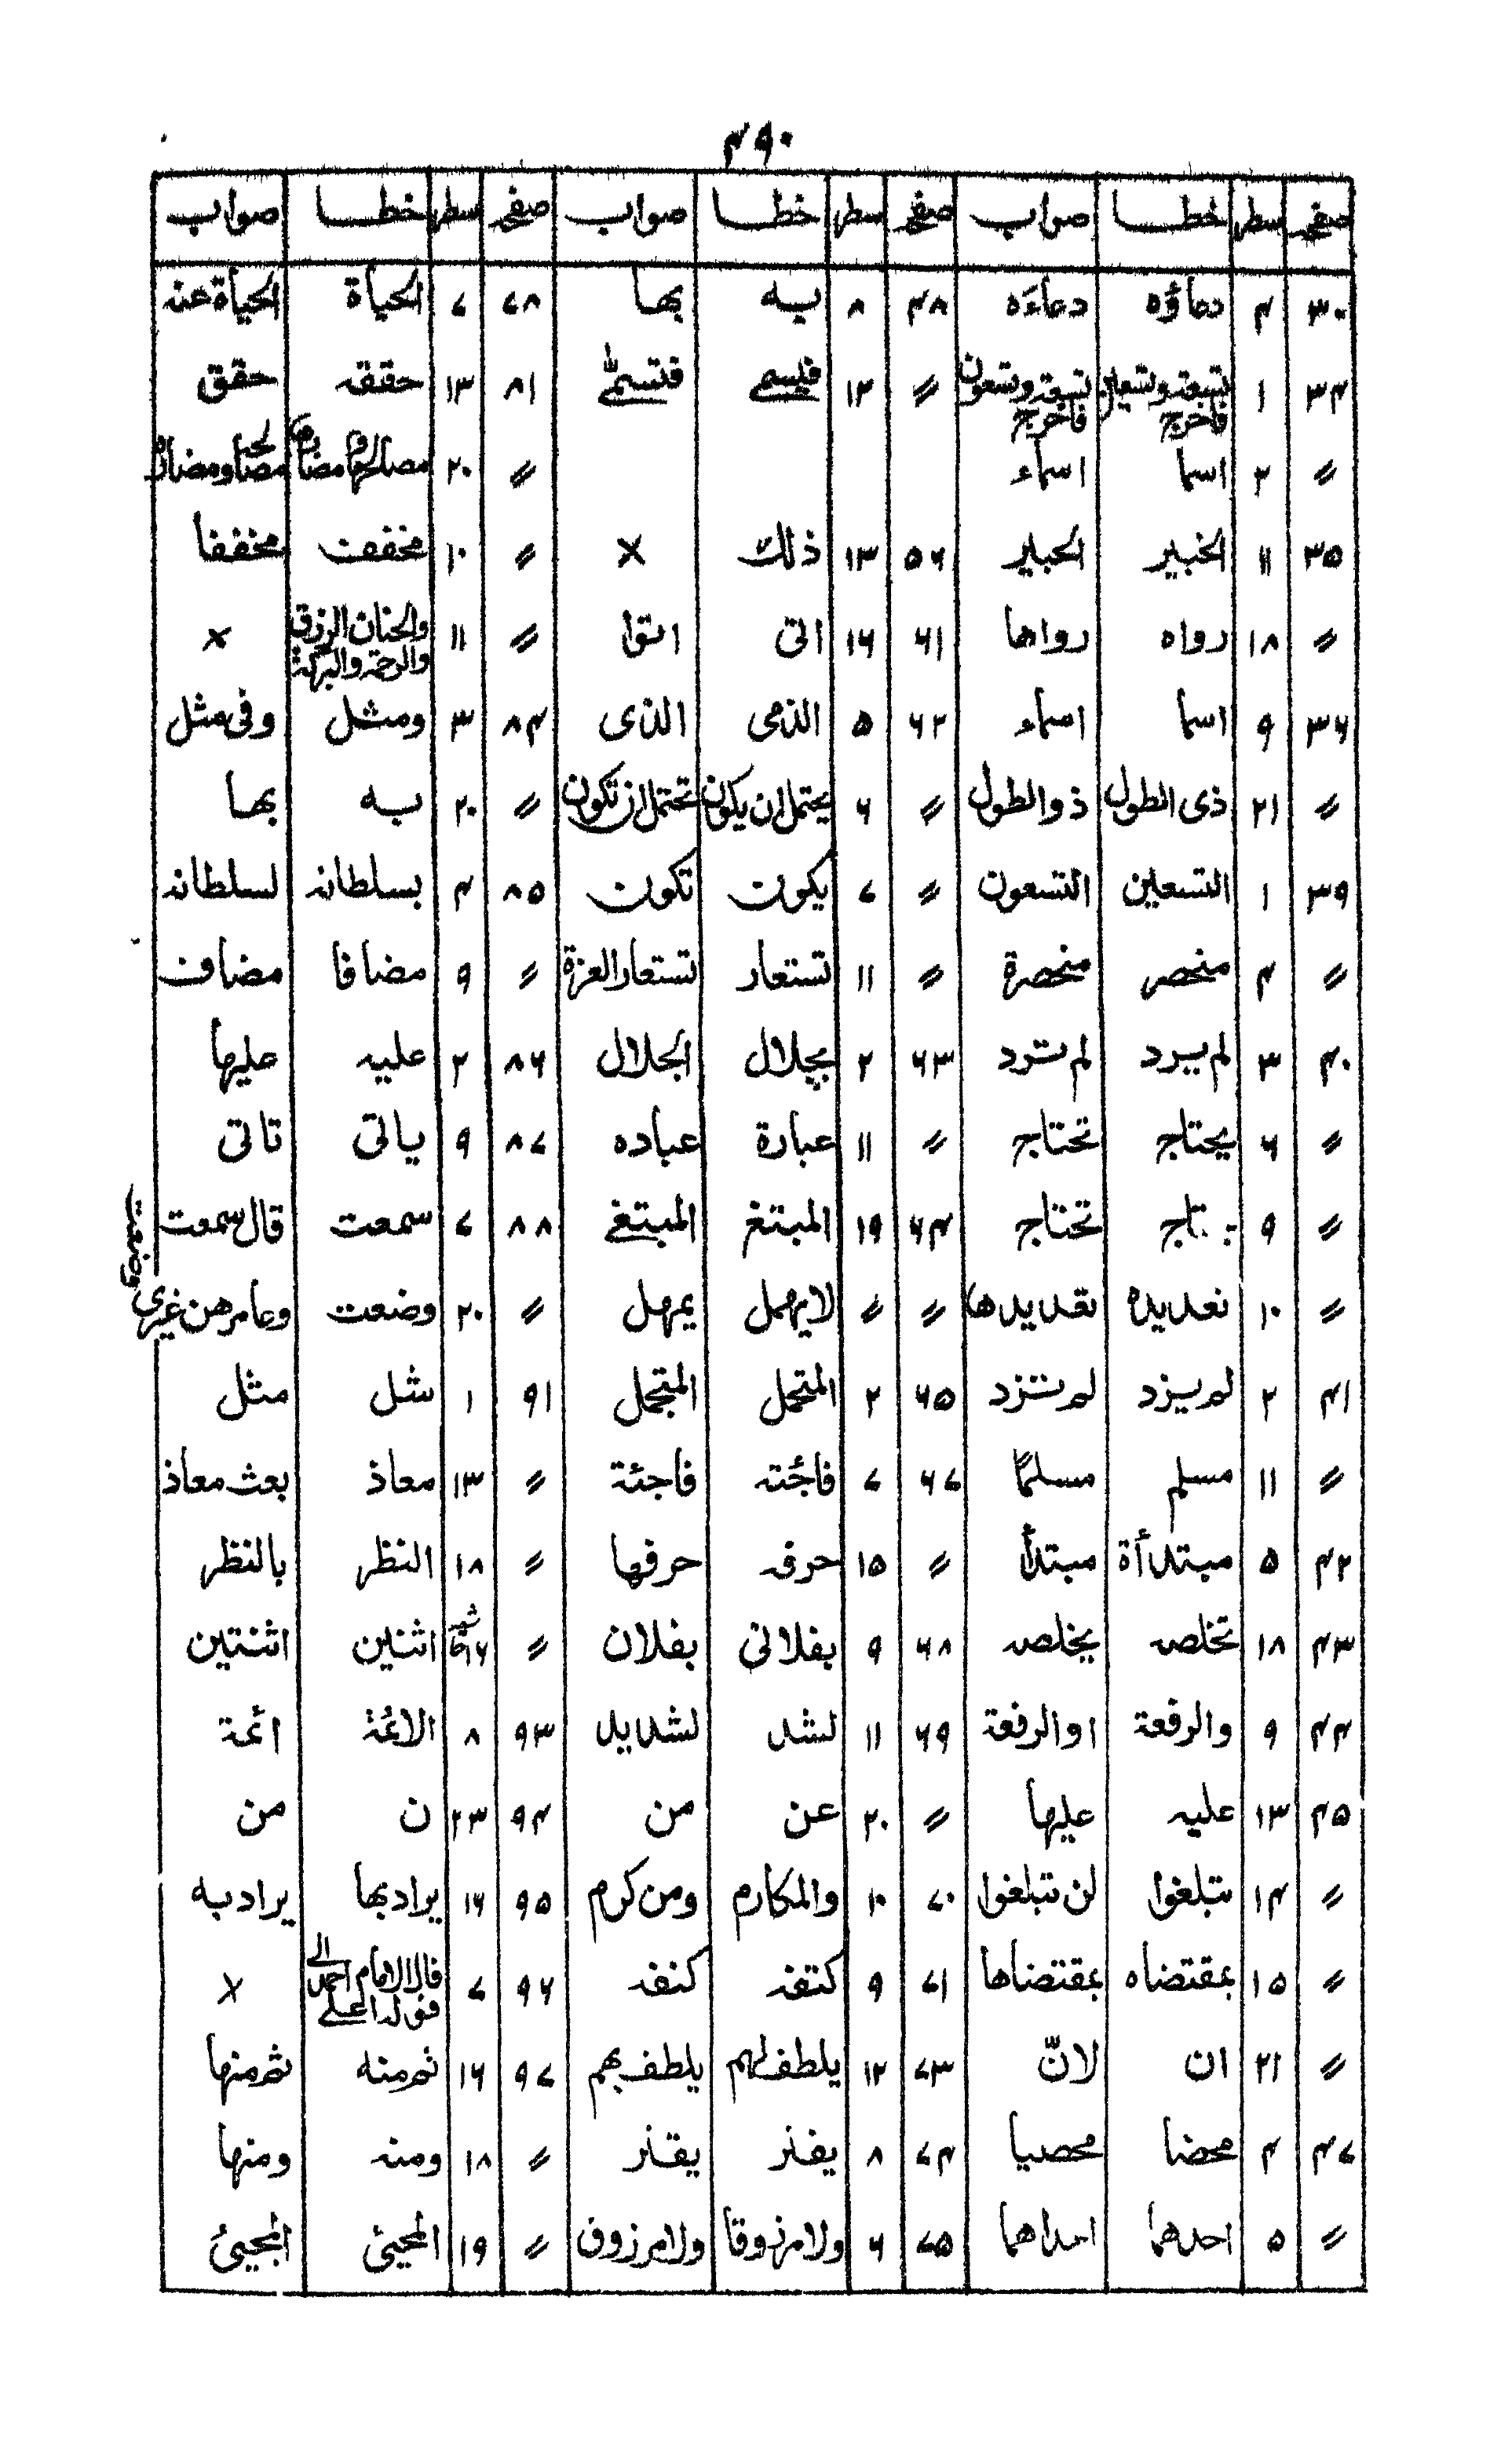 ۴۹۰
صفحہ سطر خطا صواب صفحہ سطر خطا صواب صفحہ سطر خطا صواب
۳۰ ۴ دعاؤه دعاءَه ۴۸ ۸ به بها ۷۸ ۷ الحياة الحياة عنه
۳۴ ۱ بتسعة وتسعين فاخرج تسعة وتسعون فاخرج 〃 ۱۲ فيسمى فتسمّى ۸۱ ۱۳ حققه حقق
〃 ۲ اسما اسماء 〃 ۲۰
۳۵ ۱۱ الخبير الحبير ۵۶ ۱۳ ذلك × 〃 ۱۰ مخففت مخففا
〃 ۱۸ رواه رواها ۶۱ ۱۶ اتى اتوا 〃 ۱۱ والحنان الرزق والرحمة والبركة ×
۳۶ ۹ اسما اسماء ۶۲ ۵ الذمى الذى ۸۴ ۳ ومثل وفى مثل
〃 ۲۱ ذى الطول ذو الطول 〃 ۶ يحتمل ان يكون تحتمل ان تكون 〃 ۲۰ به بها
۳۹ ۱ التسعين التسعون 〃 ۷ يكون تكون ۸۵ ۴ بسلطانه لسلطانه
〃 ۴ منحصر منحصرة 〃 ۱۱ تستعار تستعار العزة 〃 ۹ مضافا مضاف
۴۰ ۳ لم يرد لم ترد ۶۳ ۲ بجلال الجلال ۸۶ ۲ عليه عليها
〃 ۶ يحتاج تحتاج 〃 ۱۱ عبارة عباده ۸۷ ۹ ياتى تاتى
〃 ۹ تاج تحتاج ۶۴ ۱۹ المبتغ المبتغى ۸۸ ۷ سمعت قال سمعت
〃 ۱۰ تعديده تعديدها 〃 〃 لا يهمل يمهل 〃 ۲۰ وضعت وعامرهن غيرى وضعت
۴۱ ۲ لم يزد لم تزد ۶۵ ۲ المتحمل المتجمل ۹۱ ۱ شل مثل
〃 ۱۱ مسلم مسلمًا ۶۷ ۷ فاجئته فاجئة 〃 ۱۳ معاذ بعث معاذ
۴۲ ۵ مبتدأة مبتدأ 〃 ۱۵ حرفه حرفها 〃 ۱۸ النظر بالنظر
۴۳ ۱۸ تخلصه يخلصه ۶۸ ۹ بفلانى بفلان 〃 ۱۶ اثنين اثنتين
۴۴ ۹ والرفعة او الرفعة ۶۹ ۱۱ لشد لشديد ۹۳ ۸ الائمة ائمة
۴۵ ۱۳ عليه عليها 〃 ۲۰ عن من ۹۴ ۲۳ ن من
〃 ۱۴ تبلغوا لن تبلغوا ۷۰ ۱۰ والمكارم ومن كرم ۹۵ ۱۶ يراد بها يراد به
〃 ۱۵ بمقتضاه بمقتضاها ۷۱ ۹ كتفه كنفه ۹۶ ۷ قال الامام احمد الى قوله اعلى ×
〃 ۲۱ ان لانّ ۷۳ ۱۲ يلطف لهم يلطف بهم ۹۷ ۱۶ ثم منه ثم منها
۴۷ ۴ محضا محصيا ۷۴ ۸ يفتر يقتر 〃 ۱۸ ومنه ومنها
〃 ۵ احدهما احداهما ۷۵ ۶ ولا مرزوقا ولا مرزوق 〃 ۱۹ المحيئ المجيئ